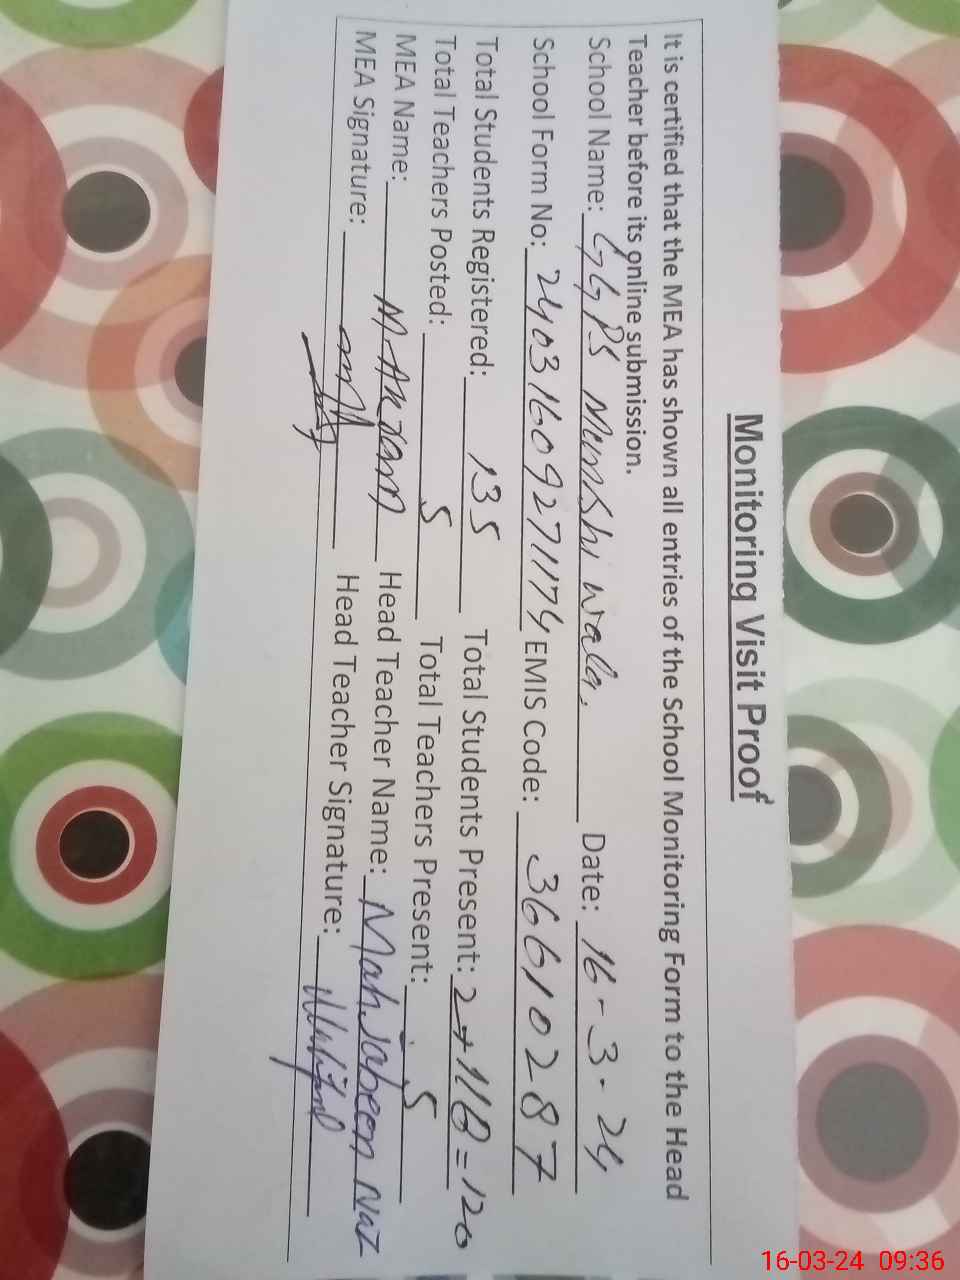 Monitoring Visit Proof
It is certified that the MEA has shown all entries of the School Monitoring Form to the Head
Teacher before its online submission.
School Name: GGPS Munshi wala, Date: 16-3-24
School Form No: 24031609271174 EMIS Code: 36610287
Total Students Registered: 135 Total Students Present: 2+118=120
Total Teachers Posted: 5 Total Teachers Present: 5
MEA Name: M. Akram Head Teacher Name: Mahjabeen Naz
MEA Signature: Head Teacher Signature:
16-03-24 09:36